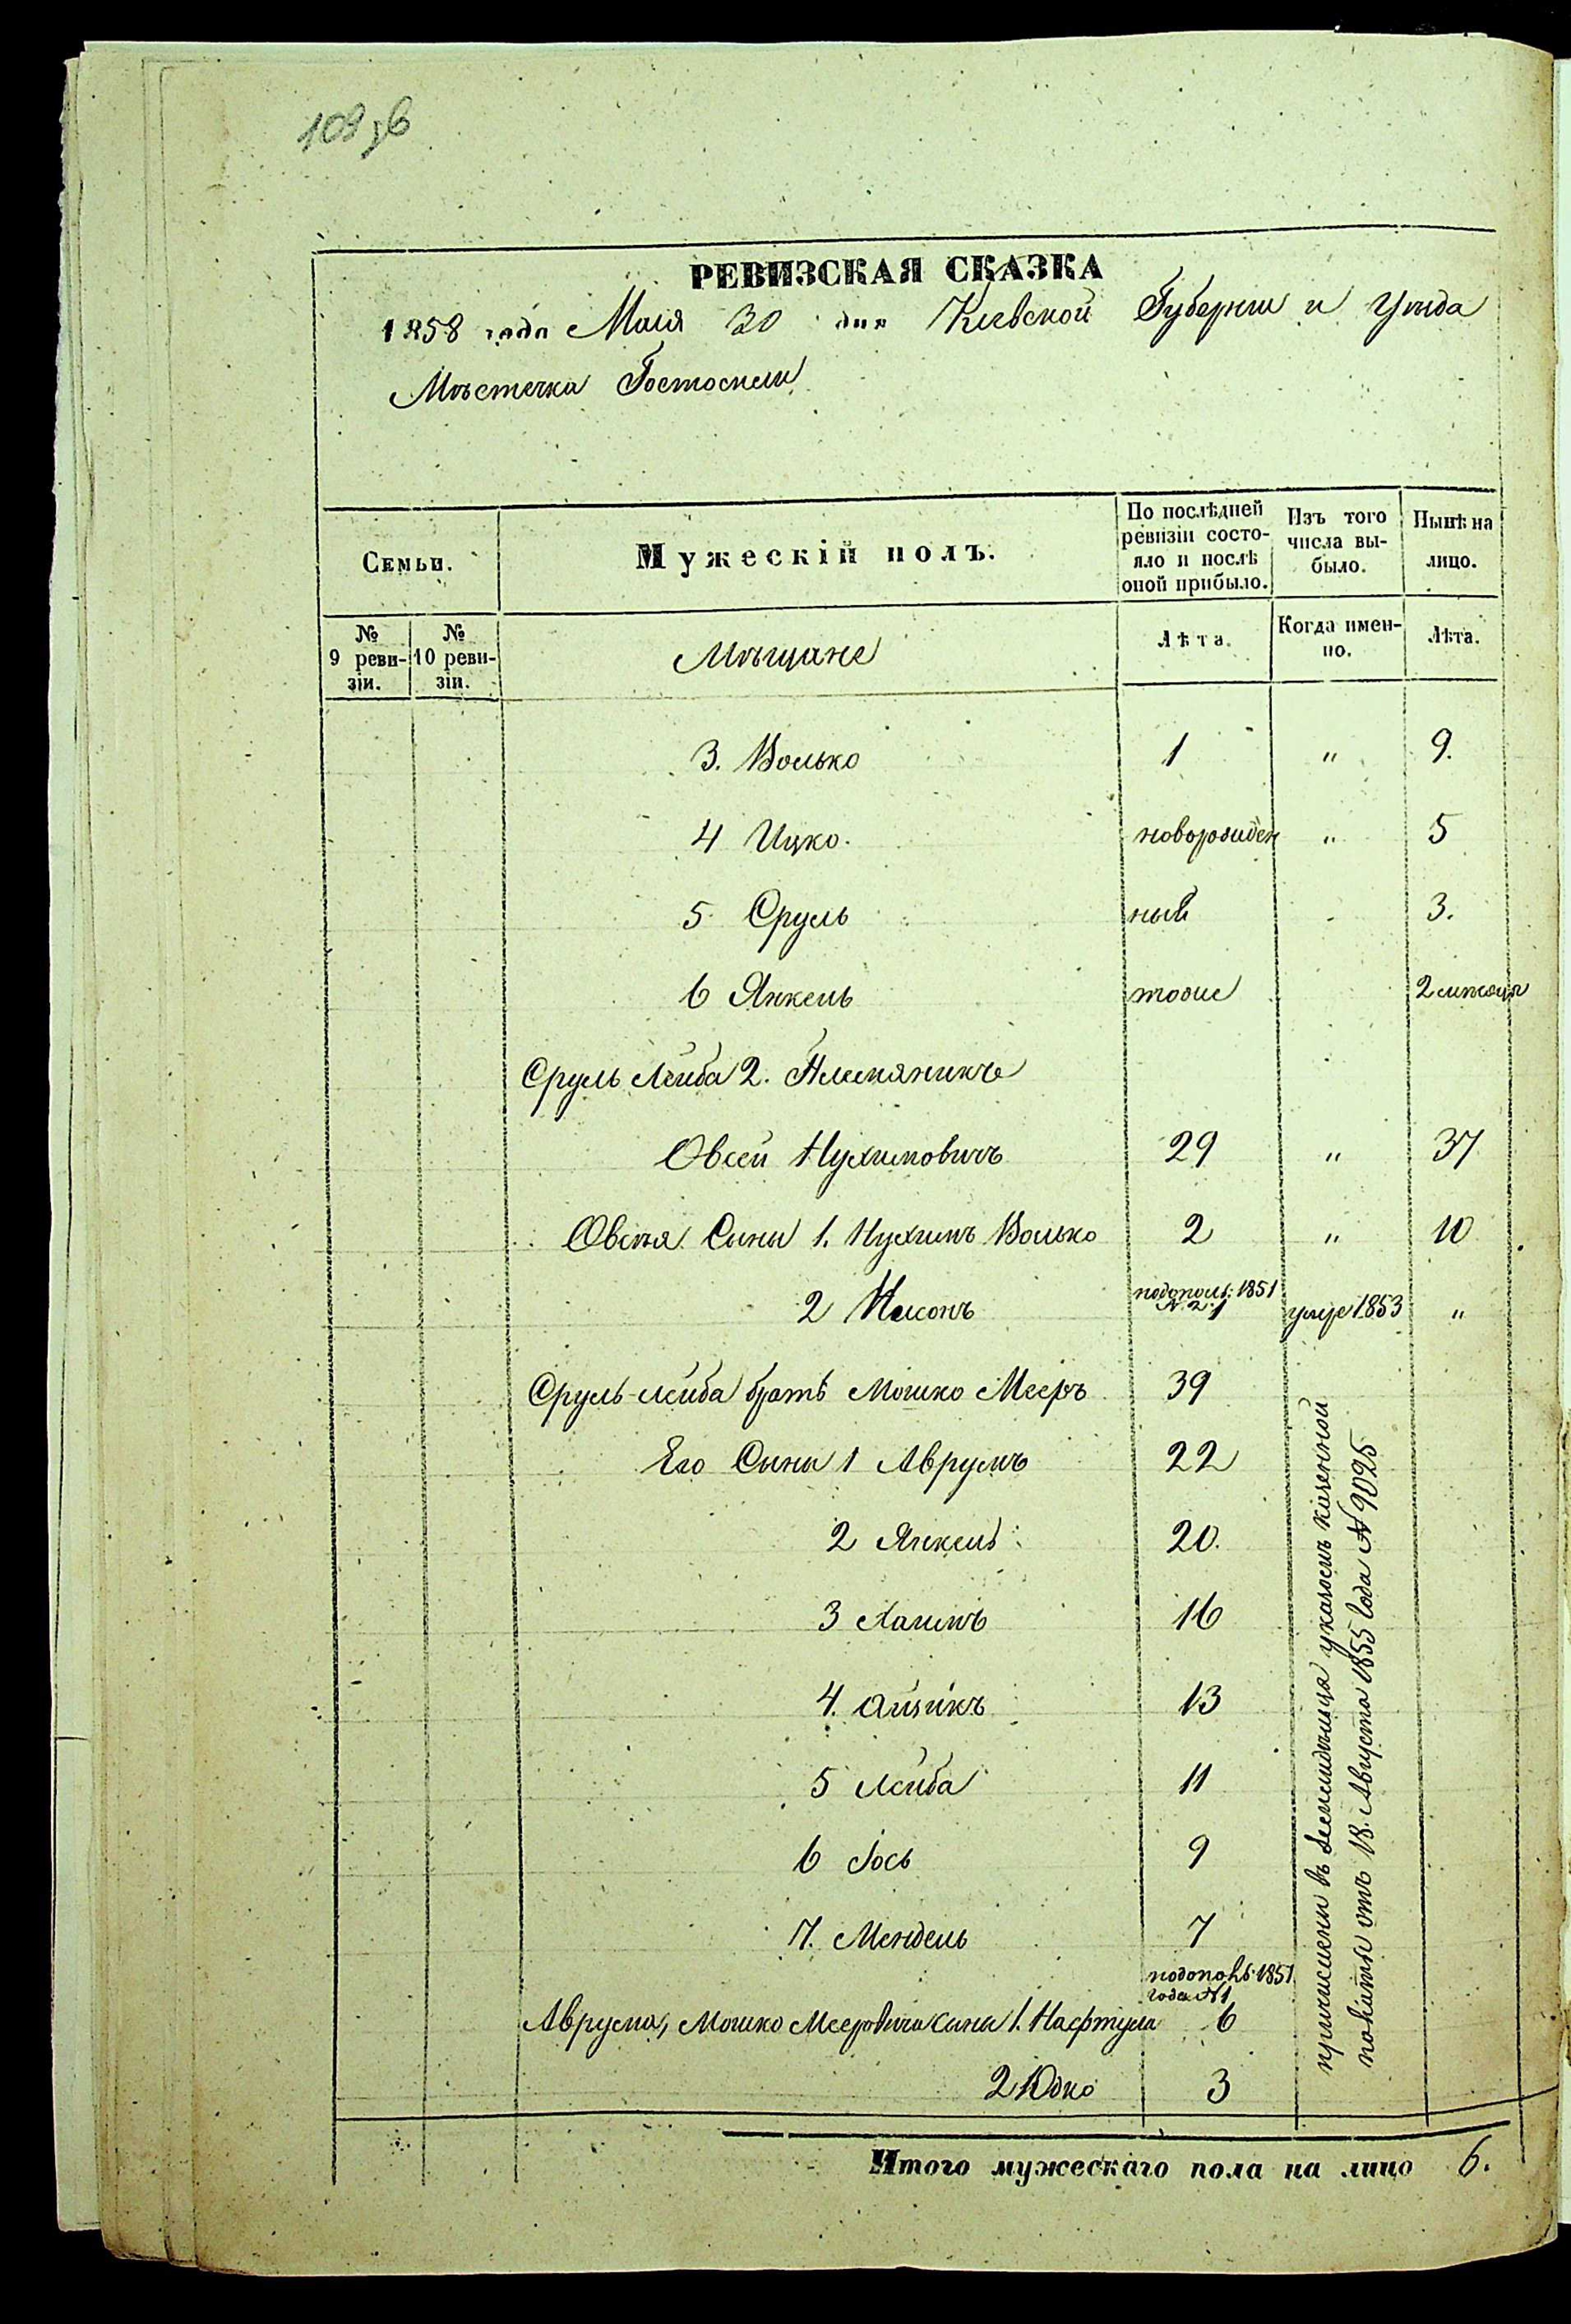 109 зв
РЕВИЗСКАЯ СКАЗКА
1858 года Маія 30 дня Кіевской Губерніи и Уѣзда
Мѣстечка Гостомеля
Семьи.
Мужескій полъ.
По послѣдней ревизіи состо-яло и послѣ оной прибыло.
Изъ того числа вы-было.
Нынѣ на лицо.
№ 9 реви-зіи.
№ 10 реви-зіи.
Мѣщане
Лѣта.
Когда имен-но.
Лѣта.
3. Волько 1 " 9.
4 Ицко. новорожден " 5
5 Сруль ный 3.
6 Янкель тоже 2 мѣсяца
Сруль Лейба 2. Племяникъ
Овсей Нухимовичъ 29 " 37
Овсѣя Сыны 1. Нухимъ Волько 2 " 10
подополн. 1851
2 № 1 умре 1853 "
Сруль-Лейба братъ Мошко Мееръ 39
Его Сыны 1 Аврумъ 22
2 Янкель 20.
3 Хаимъ 16
4. Айзикъ 13
5 Лейба 11
6 Іось 9
7. Мендель 7
подополн. 1851
года № 1
Аврума, Мошко Мееровича сыны 1. Нафтула 6
2 Юдко 3
причислены въ указомъ казенной
палаты отъ 18. Августа 1855 года № 9025
Итого мужескаго пола на лицо 6.